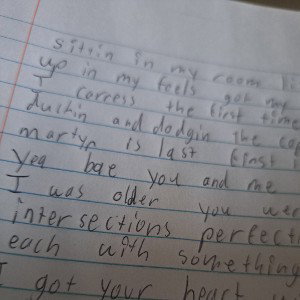 sittin in my room li
up in my feels got my
I carress the first time
duckin and dodgin the cop
martyr is last first
Yea bae you and me
I was older you wer
intersections perfect
each with something
I got your heart